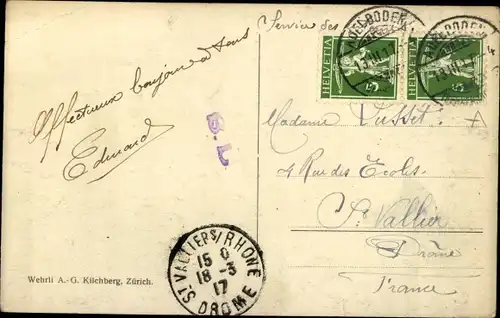 Service des
ADELBODEN
ADELBODEN
HELVETIA 5
HELVETIA 5
Affectueux bonjour à tous
Edmond
B.C
Madame Vusset
4 Rue des Ecoles
St. Vallier
Drôme
France
ST VALLIER S/RHONE
15
18-3
17
DROME
Wehrli A.-G. Kilchberg, Zürich.